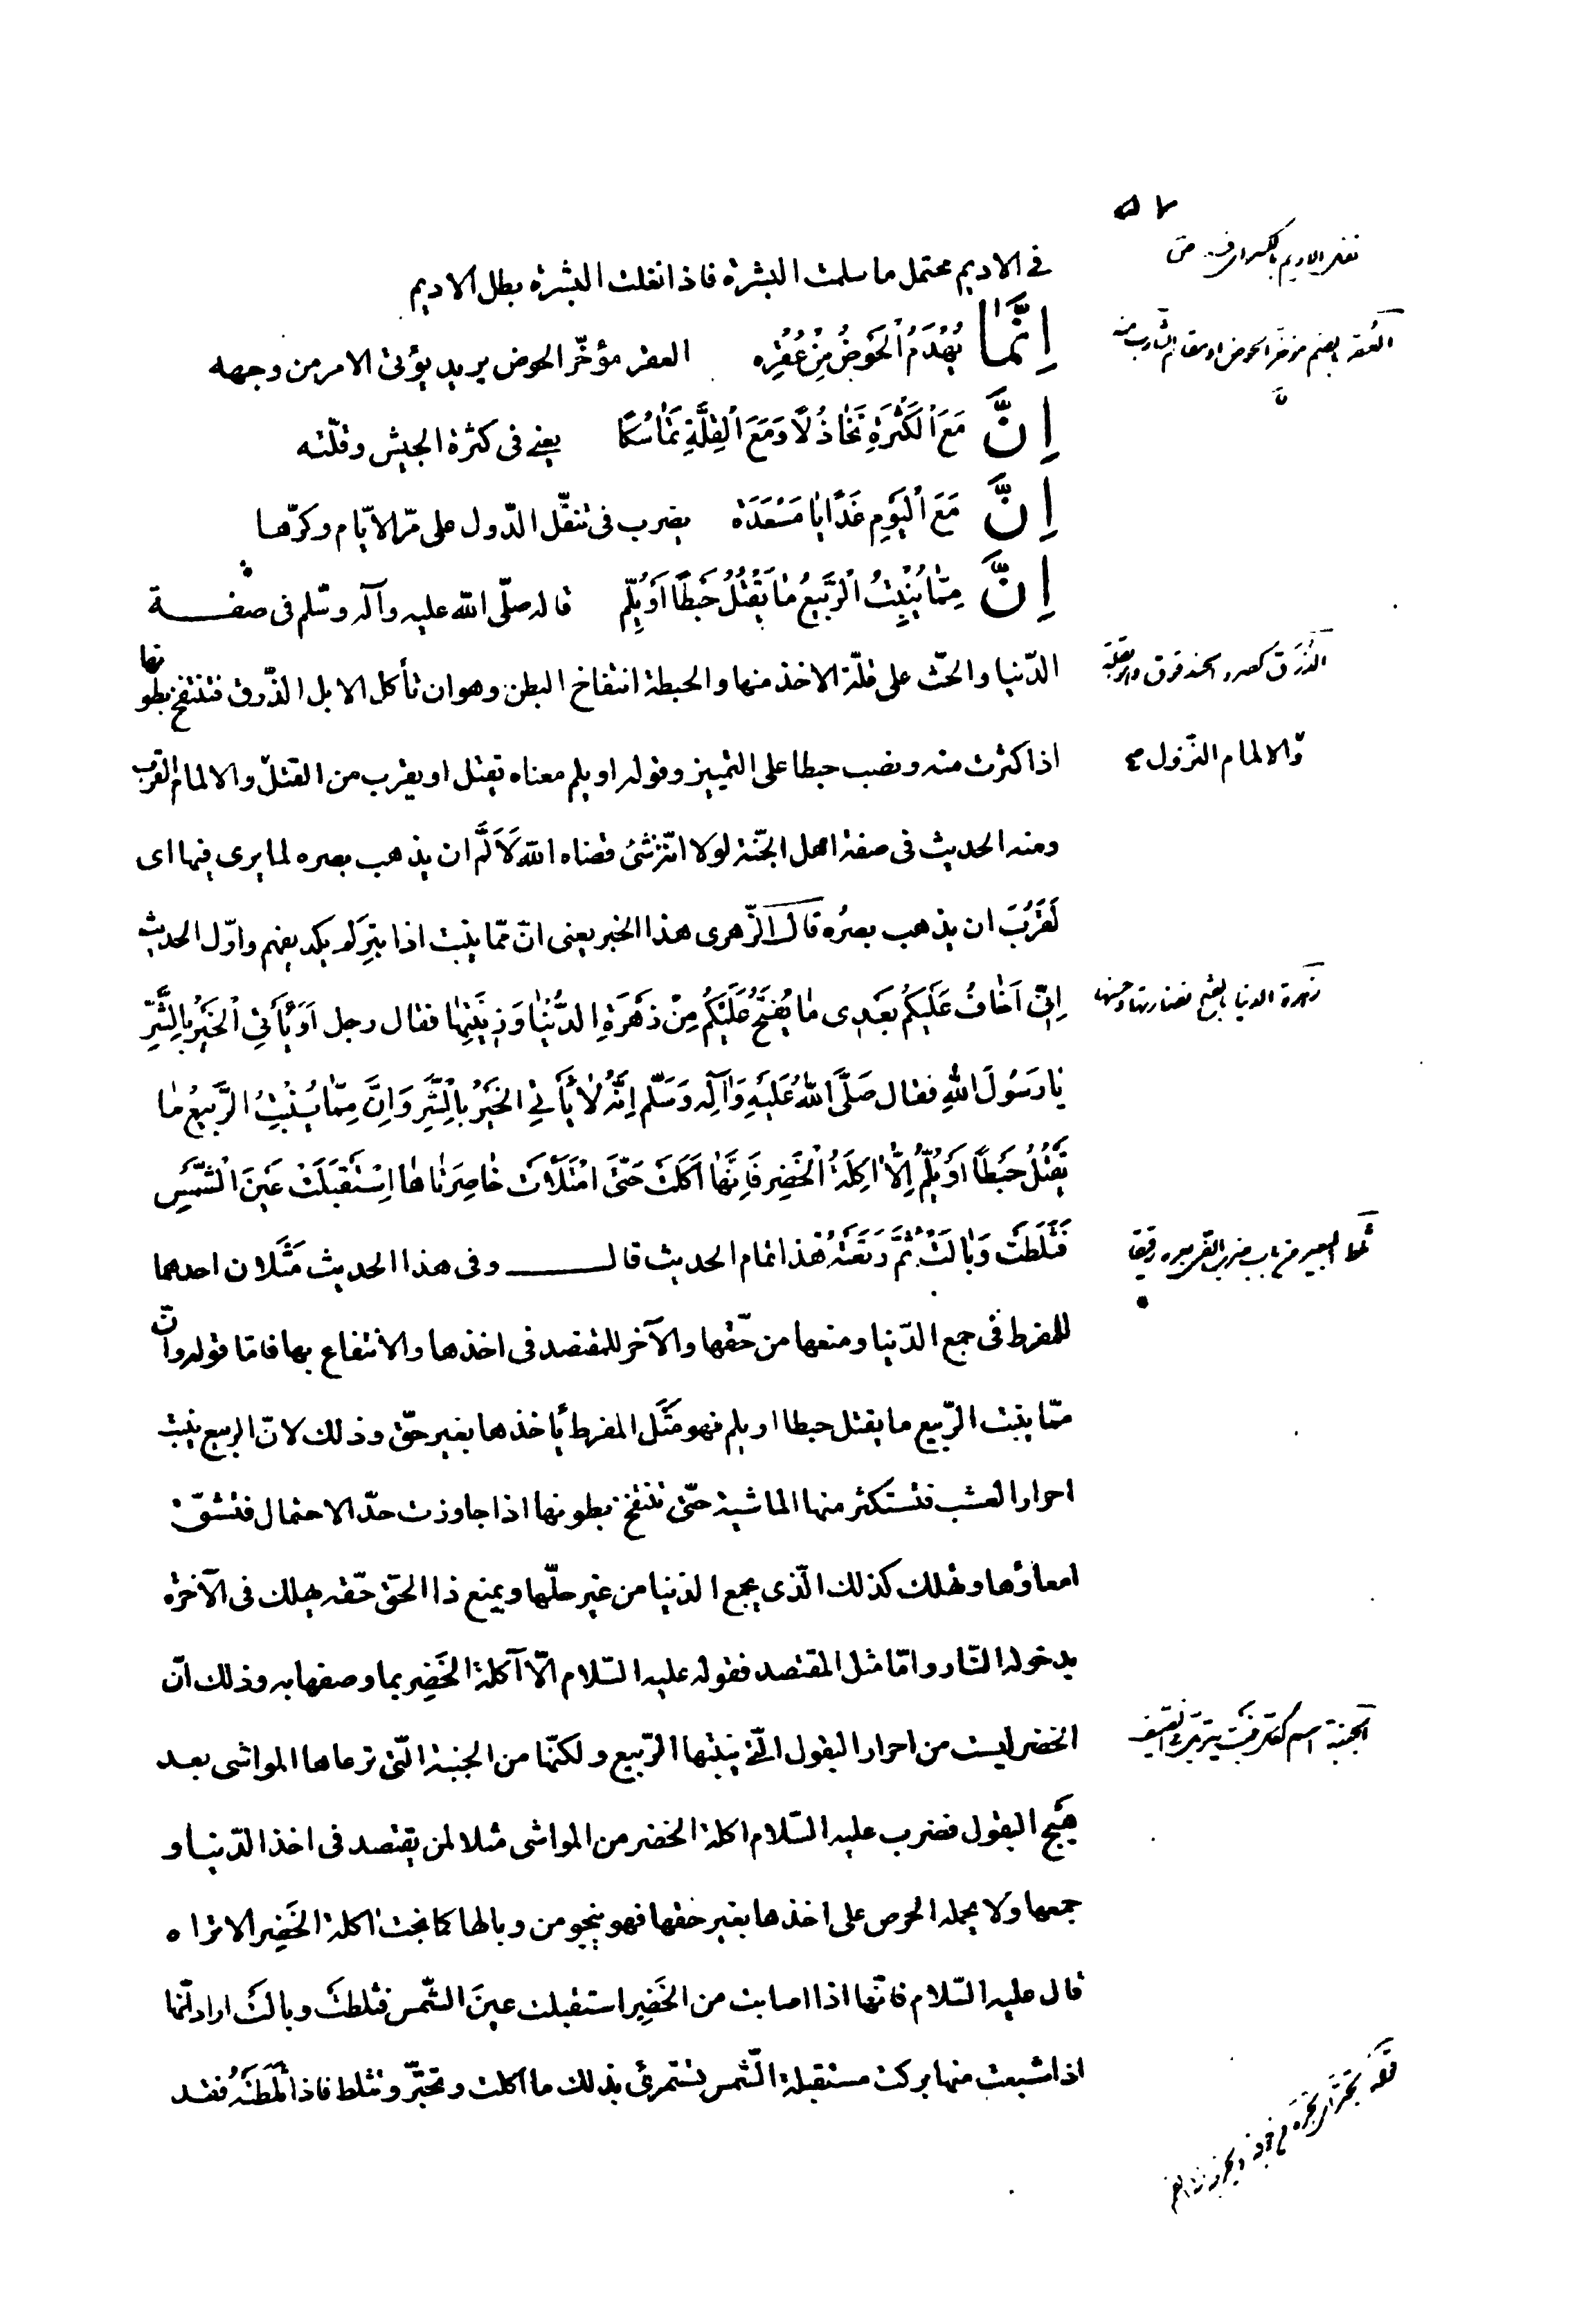 فى الاديم محتمل ما سلمت البشرة فاذا نغلت البشرة بطل الاديم
اِنَّمَا يُهْدَمُ الْحَوْضُ مِنْ عُقْرِه العقر مؤخّر الحوض يريد يؤتى الامر من وجهه
اِنَّ مَعَ الْكَثْرَةِ تَخَاذُلًا وَمَعَ الْقِلَّةِ تَمَاسُكًا يعنى فى كثرة الجيش وقلّته
اِنَّ مَعَ الْيَوْمِ غَدًا يَا مَسْعَدَة يضرب فى تنقّل الدّول على مرّ الايّام وكرّها
اِنَّ مِمَّا يُنْبِتُ الرَّبِيعُ مَا يَقْتُلُ حَبَطًا اَوْ يُلِمّ قاله صلّى الله عليه وآله وسّلم فى صفة
الدّنيا والحّث على قلّة الاخذ منها والحبطة انتفاخ البطن وهو ان تأكل الابل الذّرق فتنتفخ بطونها
اذا كثرت منه ونصب حبطا على التمييز وقوله او يلم معناه يقتل او يقرب من القتل والالمام القرب
ومنه الحديث فى صفة اهل الجّنة لولا انّه شئ قضاه الله لَاَلَمَّ ان يذهب بصره لما يرى فيها اى
لَقَرُبَ ان يذهب بصرُه قال الازّهرى هذا الخبر يعنى انّ ممّا ينبت اذا بتر لم يكد يفهم واوّل الحديث
اِنِّى اَخَافُ عَلَيْكُمْ بَعْدِى مَا يُفْتَحُ عَلَيْكُمْ مِنْ زَهْرَةِ الدُّنْيَا وَزِينَتِهَا فقال رجل اَوَ يَأْتِي الْخَيْرُ بِالشَّرِّ
يَا رَسُولَ اللهِ فقال صَلَّى اللهُ عَلَيْهِ وَاٰلِه وَسَلّم اِنَّهُ لَا يَأْتِي الْخَيْرُ بِالشَّرِّ وَاِنَّ مِمّا يُنْبِتُ الرَّبِيعُ مَا
يَقْتُلُ حَبَطًا اَوْ يُلِمُّ اِلَّا اٰكِلَةُ الْخَضِرِ فَاِنَّهَا اَكَلَتْ حَتَّى امْتَلَأَتْ خَاصِرَتَاهَا اِسْتَقْبَلَتْ عَيْنَ الْشَّمْسِ
فَثَلَطَتْ وَبَالَتْ ثُمَّ رَتَعَتْ هذا تمام الحديث قال وفى هذا الحديث مَثَلان احدهما
للمفرط فى جمع الدّنيا ومنعها من حّقها والآخر للمقتصد فى اخذها والانتفاع بها فامّا قوله وانّ
ممّا ينبت الرّبيع ما يقتل حبطا او يلم فهو مَثَل المفرط يأخذها بغير حقّ وذلك لانّ الربيع ينبت
احرار العشب فتستكثر منها الماشية حتّى تنتفخ بطونها اذا جاوزت حدّ الاحتمال فتنشقّ
امعاؤها وتهلك كذلك الّذى يجمع الدنيا من غير حلّها ويمنع ذا الحقّ حّقه يهلك فى الآخرة
بدخوله النّار وامّا مثل المقتصد فقوله عليه السّلام الّا آكلة الخَضِر بما وصفها به وذلك انّ
الخضر ليست من احرار البقول الّتى ينبتها الرّبيع ولكنّها من الجنبة الّتى ترعاها المواشى بعد
هَيْج البقول فضرب عليه السّلام اكلة الخضر من المواشى مثلا لمن يقتصد فى اخذ الدّنيا و
جمعها ولا يحمله الحرص على اخذها بغير حقها فهو ينجو من وبالها كما نجت اكلة الخَضِر الا تراه
قال عليه السّلام فانّها اذا اصابت من الخَضِر استقبلت عينَ الشّمس فثلطتْ وبالتْ اراد انّها
اذا شبعت منها بركت مستقبلة الشّمس تستمرئ بذلك ما اكلت وتجترّ وتثلط فاذا ثَلَطَتْهُ فقد
نغل الاديم بالكسر اى فسد
العُقر بضم مؤخر الحوض او مقام الشارب منه
الذُرَق كصرد الحندقوق
والالمام النّزول
زهرة الدنيا بالفتح نضارتها وحسنها
ثلط البعير من باب ضرب القى بعره رقيقا